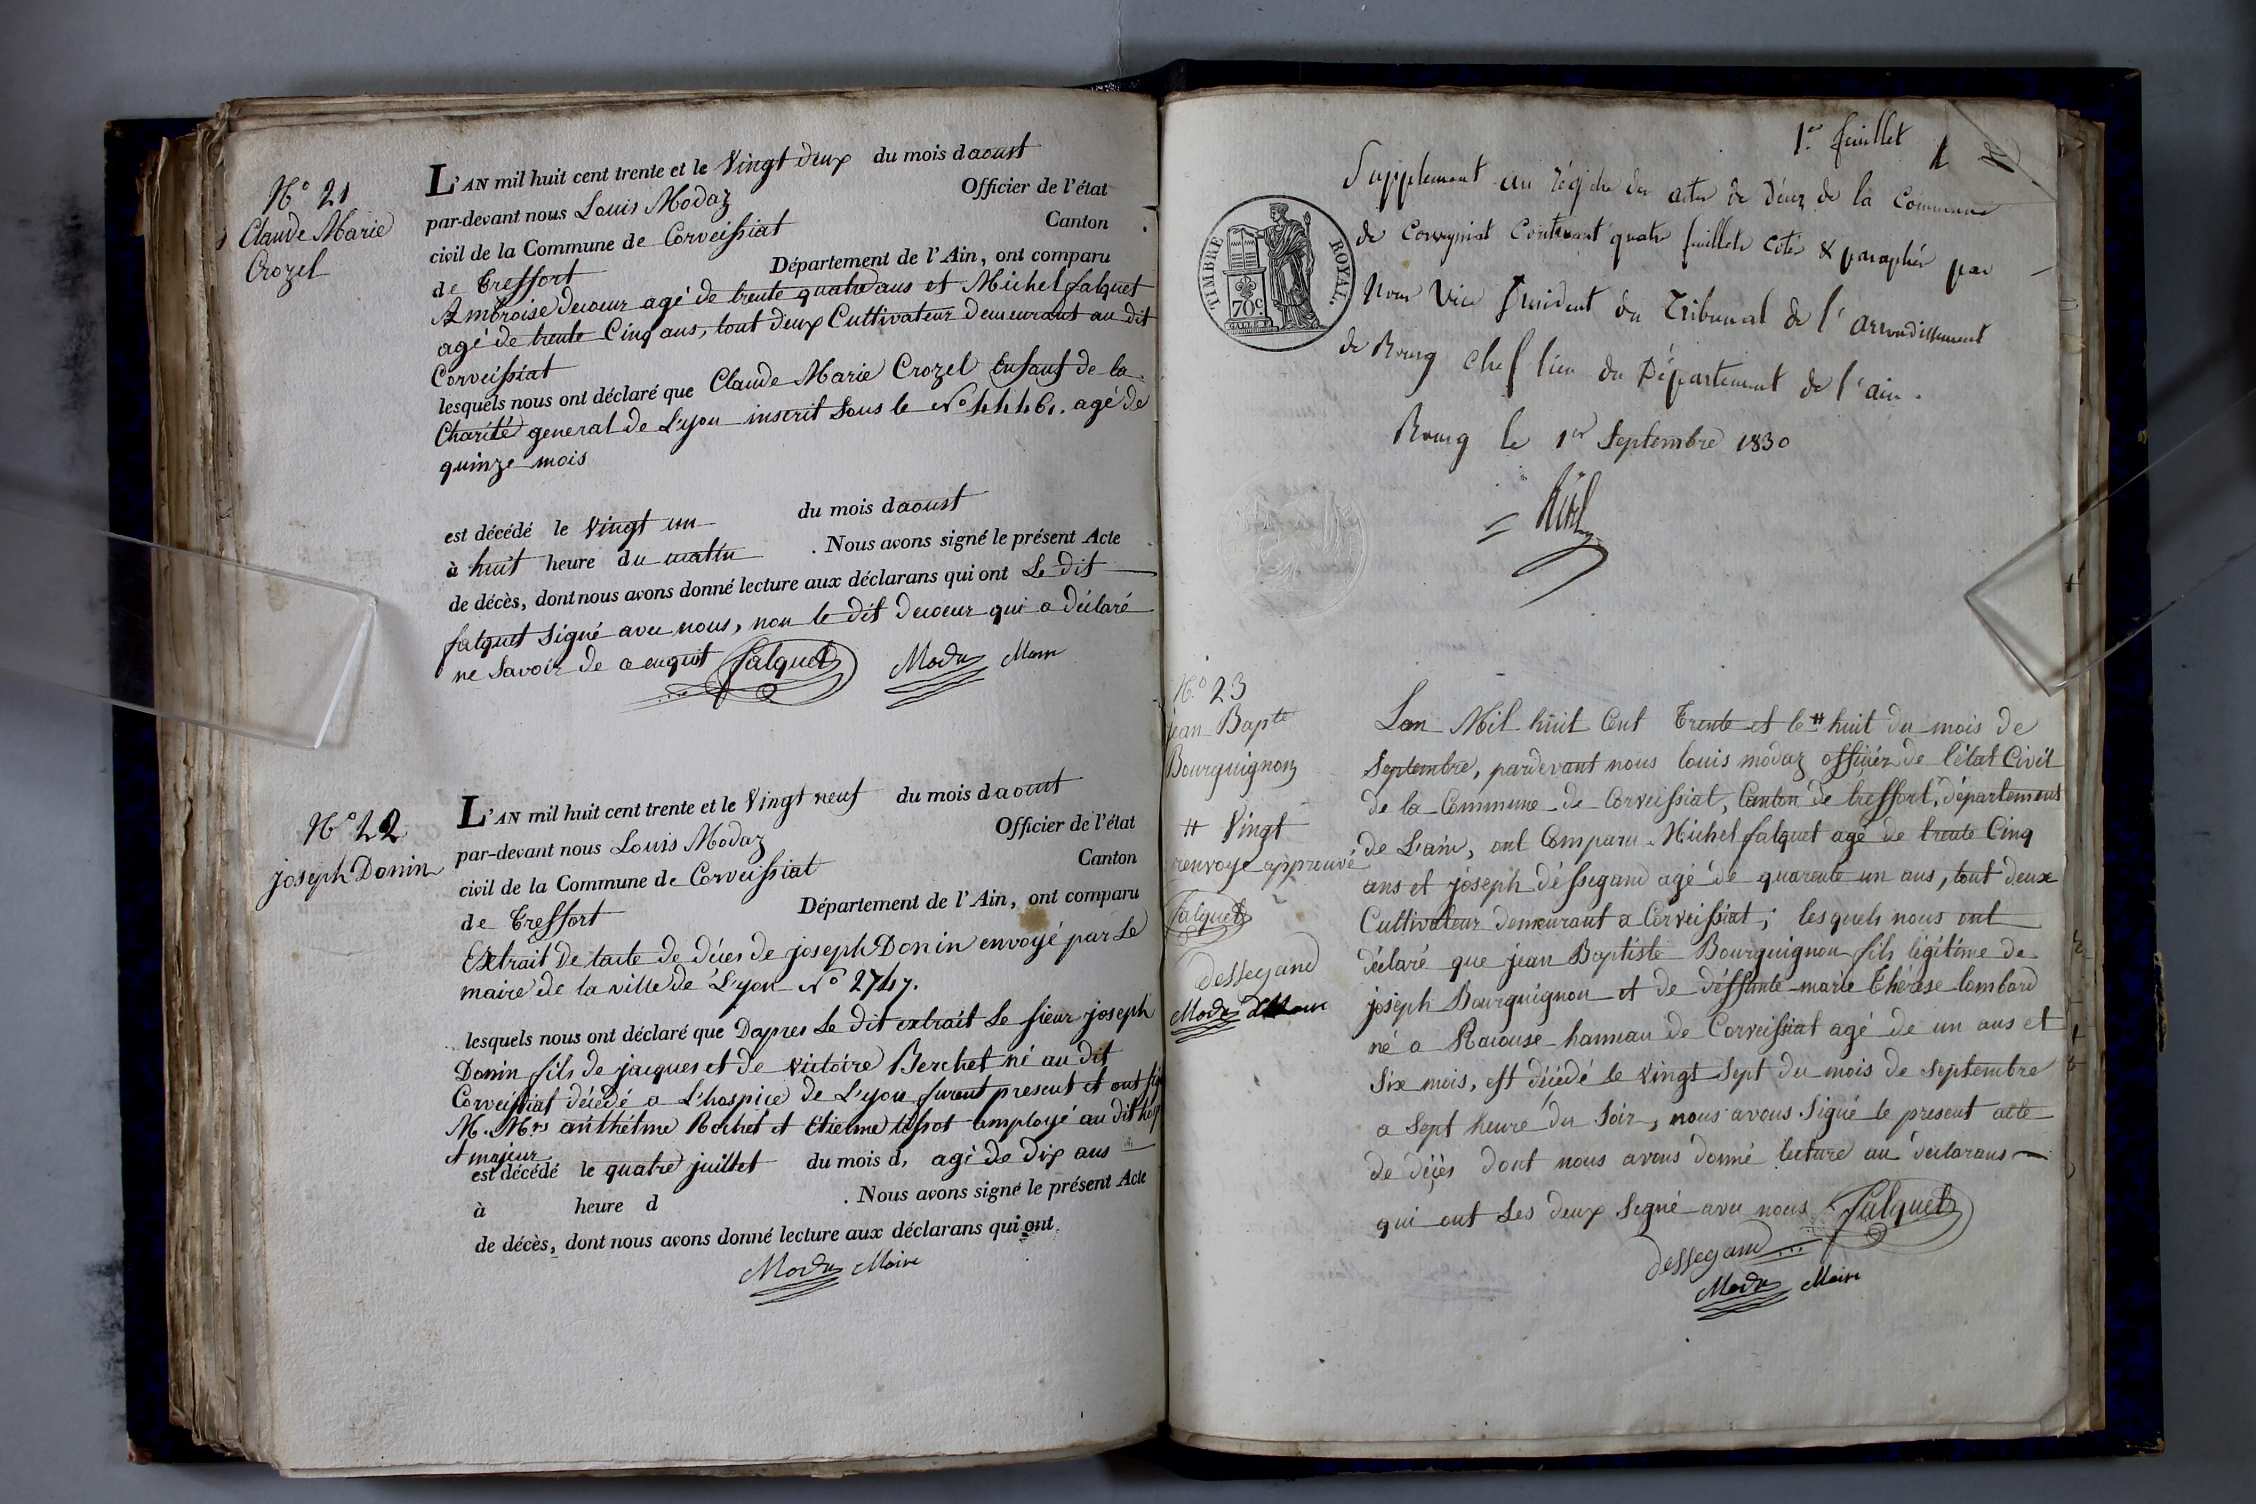 N° 21
Claude Marie
Crozel
L'AN mil huit cent trente et le Vingt deux du mois d'aoust
par-devant nous Louis Modaz Officier de l'état
civil de la Commune de Corveissiat Canton
de Treffort Département de l'Ain, ont comparu
Ambroise decoeur agé de trente quatre ans et Michel falquet
agé de trente Cinq ans, tout deux Cultivateur demeurant au dit
Corveissiat
lesquels nous ont déclaré que Claude Marie Crozel Enfant de la
Charité general de Lyon inscrit Sous le N° 44461. agé de
quinze mois
est décédé le Vingt un du mois d'aoust
à huit heure du matin . Nous avons signé le présent Acte
de décès, dont nous avons donné lecture aux déclarans qui ont Le dit
falquet Signé avec nous, non le dit decoeur qui a déclaré
ne Savoir de a enquit Falquet Modaz Maire
N° 22
joseph Donin
L'AN mil huit cent trente et le Vingt neuf du mois d'aoust
par-devant nous Louis Modaz Officier de l'état
civil de la Commune de Corveissiat Canton
de Treffort Département de l'Ain, ont comparu
Extrait De tacte de déces de joseph Donin envoyé par Le
maire de la ville de Lyon N° 2747.
lesquels nous ont déclaré que Dapres Le dit extrait Le sieur joseph
Donin fils de jacques et de victoire Berchet né au dit
Corveissiat décédé a L'hospice de Lyon furent present et ont
M. Mrs anthelme Rochet et Etienne tissot Employé au dit
et majeur
est décédé le quatre juillet du mois d, agé de dix ans
à heure d . Nous avons signé le présent Acte
de décès, dont nous avons donné lecture aux déclarans qui ont
Modaz Maire
1er feuillet
Supplement au régistre des actes de Décez de la Commune
de Corveyssiat Contenant quatre feuillets cotés & paraphés par
Nous Vice Président du Tribunal de l'arrondissement
de Bourg Chef lieu du Département de l'ain.
Bourg le 1er Septembre 1830
TIMBRE ROYAL.
70c.
N° 23
jean Bapte
Bourguignon
# Vingt
renvoye appreuvé
Falquet
dessegand
Modaz Maire
Lan Mil huit Cent Trente et le # huit du mois de
Septembre, pardevant nous louis modaz officier de l'état Civil
de la Commune de Corveissiat, Canton de treffort, département
de L'ain, ont Comparu Michel falquet agé de trente Cinq
ans et joseph déssegand agé de quarente un ans, tout deux
Cultivateur demeurant a Corveissiat; lesquels nous ont
déclaré que jean Baptiste Bourguignon fils légitime de
joseph Bourguignon et de déffunte marie Thérèse lombard
né a Racouse hamau de Corveissiat agé de un ans et
Six mois, est décédé le vingt Sept du mois de Septembre
a Sept heure du Soir, nous avons Signé le present acte
de décès dont nous avons donné lecture au declarans
qui ont Les deux Segné avec nous Falquet
dessegand
Modaz Maire